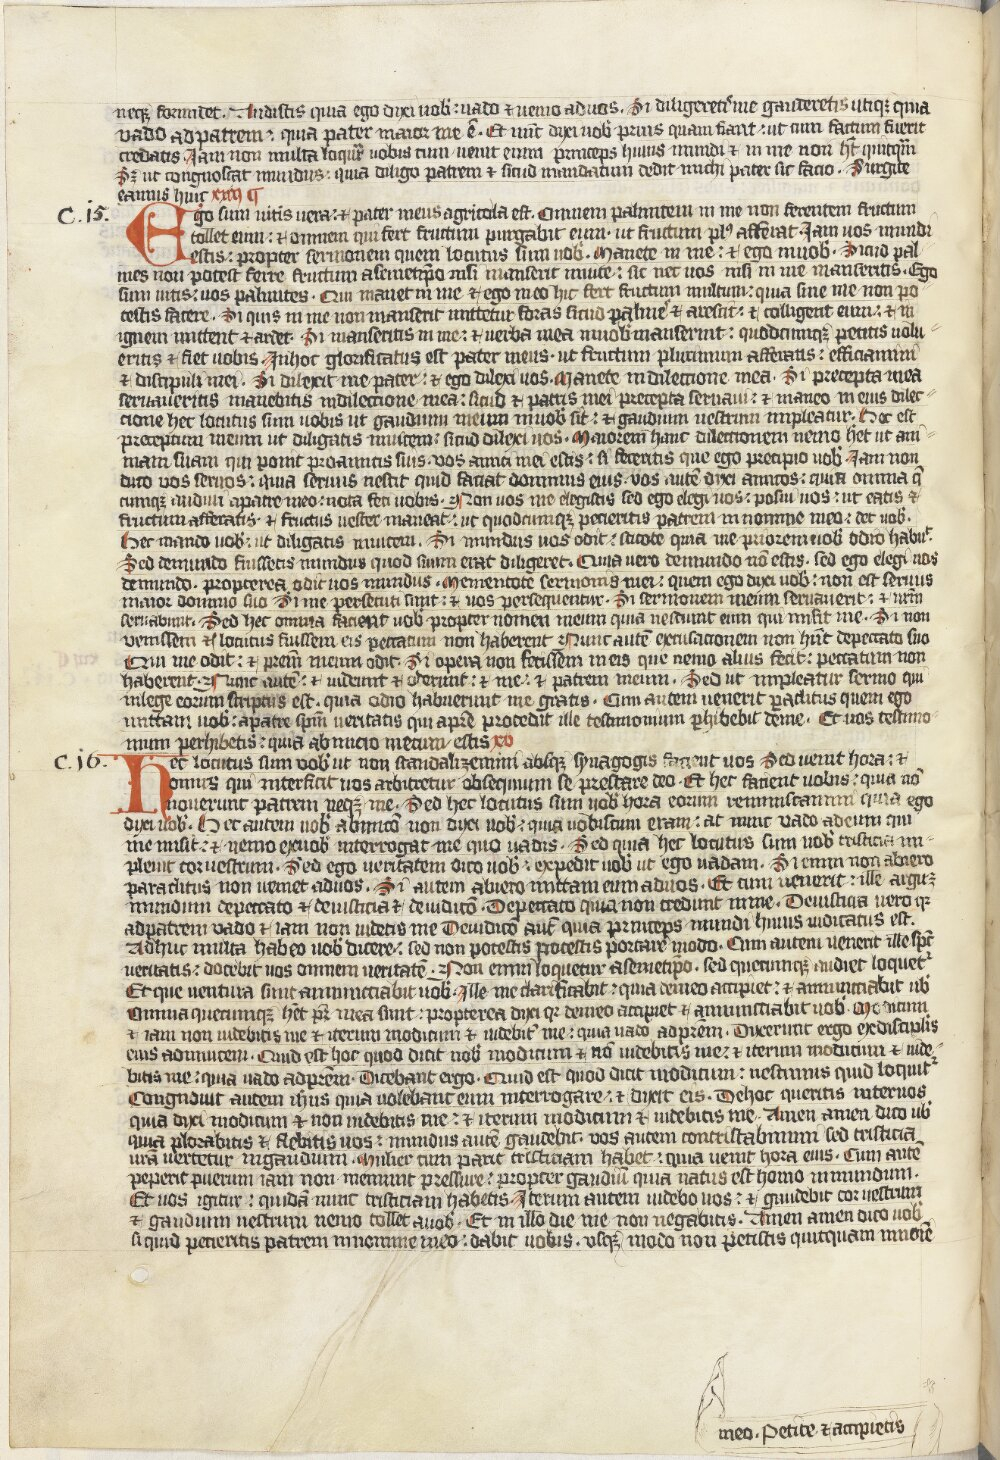 neq; formidet. Audistis quia ego dixi uob̾: uado ⁊ uenio ad uos. Si diligeretis me gauderetis utiq; quia
uado ad patrem: quia pater maior me ē. Et nūc dixi uob̾ prius quam fiant: ut cum factum fuerit
credatis. Iam non multa loquar uobis cum uenit enim princeps huius mundi ⁊ in me non h̄t quicquam
S; ut congnoscat mundus: quia diligo patrem ⁊ sicud mandatum dedit michi pater sic facio. Surgite
eamus hinc
C. 15. Ego sum uitis uera: ⁊ pater meus agricola est. Omnem palmitem in me non ferentem fructum
tollet eum: ⁊ omnem qui fert fructum purgabit eum. ut fructum pl9 afferat. Iam uos mundi
estis: propter sermonem quem locutus sum uob̾. Manete in me: ⁊ ego in uob̾. Sicud pal
mes non potest ferre fructum a semetip̄o nisi manserit in uite: sic nec uos nisi in me manseritis. Ego
sum uitis: uos palmites. Qui manet in me ⁊ ego in eo hic fert fructum multum: quia sine me non po
testis facere. Si quis in me non manserit mittetur foras sicud palmes ⁊ arescit: ⁊ colligent eum: ⁊ in
ignem mittent ⁊ ardet. Si manseritis in me: ⁊ uerba mea in uob̾ manserint: quodcumq; petitis uolu
eritis ⁊ fiet uobis. In hoc glorificatus est pater meus. ut fructum plurimum afferatis: efficiamini
⁊ discipuli mei. Si dilexit me pater: ⁊ ego dilexi uos. Manete in dilectione mea. Si precepta mea
seruaueritis manebitis in dilectione mea: sicud ⁊ patris mei precepta seruaui: ⁊ maneo in eius dilec
tione hec locutus sum uobis ut gaudium meum in uob̾ sit: ⁊ gaudium uestrum impleatur. Hoc est
preceptum meum ut diligatis inuicem: sicud dilexi uos. Maiorem hanc dilectionem nemo h̄et ut ani
mam suam qui ponit pro amicis suis. uos amici mei estis: si feceritis que ego precipio uob̾. Iam non
dico uos seruos: quia seruus nescit quid faciat dominus eius. uos autē dixi amicos: quia omnia q̄
cumq; audiui a patre meo: nota feci uobis. Non uos me elegistis sed ego elegi uos: posui uos: ut eatis ⁊
fructum afferatis. ⁊ fructus uester maneat: ut quodcumq; pecieritis patrem in nomine meo: det uob̾.
Hec mando uob̾: ut diligatis inuicem. Si mundus uos odit: scitote quia me priorem uob̾ odio habuit.
Sed de mundo fuissetis mundus quod suum erat diligeret. Quia uero de mundo nō estis. sed ego elegi uos
de mundo. propterea odit uos mundus. Mementote sermonis mei: quem ego dixi uob̾: non est seruus
maior domino suo Si me persecuti sunt: ⁊ uos persequentur. Si sermonem meum seruauerit: ⁊ ur̄m
seruabunt. Sed hec omnia facient uob̾ propter nomen meum quia nesciunt eum qui misit me. Si non
uenissem ⁊ locutus fuissem eis peccatum non haberent Nunc autē excusacionem non hn̄t de peccato suo
Qui me odit: ⁊ prēm meum odit. Si opera non fecissem in eis que nemo alius fecit: peccatum non
haberent. Nunc autē: ⁊ uiderunt ⁊ oderunt: ⁊ me: ⁊ patrem meum. Sed ut impleatur sermo qui
in lege eorum scriptus est. quia odio habuerunt me gratis. Cum autem uenerit paclitus quem ego
mittam uob̾: a patre sp̄m ueritatis qui a p̄re procedit ille testimonium phibebit de me. Et uos testimo
nium perhibetis: quia ab inicio mecum estis xv
C. 16. Hec locutus sum uob̾ ut non scandalizemini absq; synagogis facient uos Sed uenit hora: ⁊
omnis qui interficit uos arbitretur obsequium se prestare deo. Et hec facient uobis: quia nō
nouerunt patrem neq; me. Sed hec locutus sum uob̾ hora eorum reminiscamini quia ego
dixi uob̾. Hec autem uob̾ ab inicō non dixi uob̾: quia uobiscum eram: at nunc uado ad eum qui
me misit: ⁊ nemo ex uob̾ interrogat me quo uadis. Sed quia hec locutus sum uob̾ tristicia im
pleuit cor uestrum. Sed ego ueritatem dico uob̾: expedit uob̾ ut ego uadam. Si enim non abiero
paraclitus non ueniet ad uos. Si autem abiero mittam eum ad uos. Et cum uenerit: ille arguz
mundum de peccato ⁊ de iusticia ⁊ de iudicō. De peccato quia non credunt in me. De iusticia uero qr
ad patrem uado ⁊ iam non uidetis me De iudicō aut̄ quia princeps mundi huius iudicatus est.
Adhuc multa habeo uob̾ dicere: sed non potestis potestis portare modo. Cum autem uenerit ille sp̄c
ueritatis: docebit uos omnem ueritatē. Non enim loquetur a semetip̄o. sed quecumq; audiet loquet̾
Et que uentura sunt annuncciabit uob̾. Ille me clarificabit: quia de meo accipiet: ⁊ annunciabit ub̾
Omnia quecumq; h̄et pr̄ mea sunt: propterea dixi qr de meo accipiet ⁊ annunciabit uob̾. Modicum
⁊ iam non uidebitis me ⁊ iterum modicum ⁊ uidebit̾ me: quia uado ad prēm. Dixerunt ergo ex discipulis
eius ad inuicem. Quid est hoc quod dicit nob̾ modicum ⁊ nō uidebitis me: ⁊ iterum modicum ⁊ uide
bitis me: quia uado ad prēm. Dicebant ergo. Quid est quod dicit modicum: nescimus quid loquit̾
Congnouit autem ih̄us quia uolebant eum interrogare: ⁊ dixit eis. De hoc queritis inter uos
quia dixi modicum ⁊ non uidebitis me: ⁊ iterum modicum ⁊ uidebitis me. Amen amen dico ub̾
quia plorabitis ⁊ flebitis uos: mundus autē gaudebit. uos autem contristabimini sed tristicia
ur̄a uertetur in gaudium. Mulier cum parit tristiciam habet: quia uenit hora eius. Cum autē
peperit puerum iam non meminit pressure: propter gaudiū quia natus est homo in mundum.
Et uos igitur: quidā nunc tristiciam habetis. Iterum autem uidebo uos: ⁊ gaudebit cor uestrum
⁊ gaudium uestrum nemo tollet a uob̾. Et in illo die me non negabitis. Amen amen dico uob̾
si quid pecieritis patrem in nomine meo: dabit uobis. usq; modo non petistis quitquam in noīe
meo. Petite ⁊ accipietis